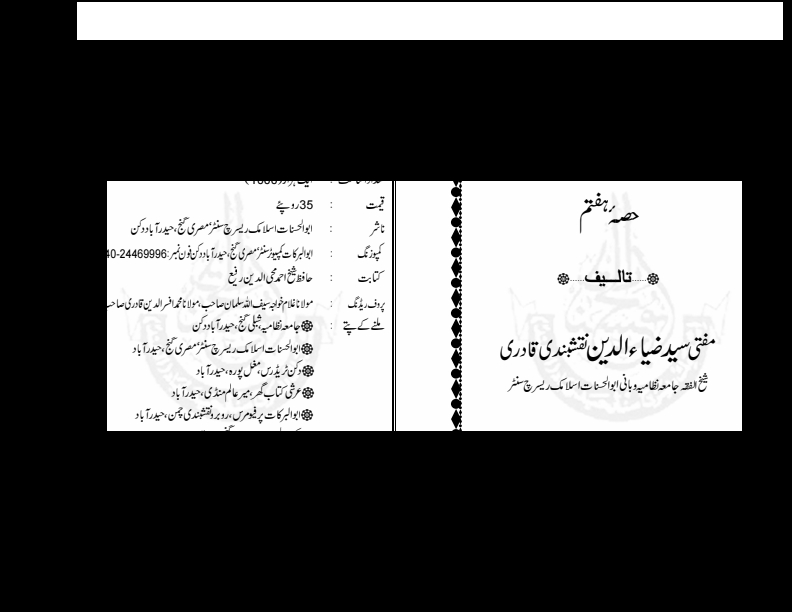 حصہ ہفتم
تالیف
مفتی سید ضیاء الدین نقشبندی قادری
شیخ الفقہ جامعہ نظامیہ وبانی ابوالحسنات اسلامک ریسرچ سنٹر
قیمت : 35روپئے
ناشر : ابوالحسنات اسلامک ریسرچ سنٹر، مصری گنج، حیدرآباد دکن
کمپوزنگ : ابوالبرکات کمپیوٹر سنٹر، مصری گنج، حیدرآباد دکن فون نمبر:40-24469996
کتابت : حافظ شیخ احمد محی الدین رفیع
پروف ریڈنگ : مولانا غلام خواجہ سیف اللہ سلمان صاحب، مولانا محمد افسر الدین قادری صاحب
ملنے کے پتے : جامعہ نظامیہ، شبلی گنج، حیدرآباد دکن
ابوالحسنات اسلامک ریسرچ سنٹر، مصری گنج، حیدرآباد
دکن ٹریڈرس، مغل پورہ، حیدرآباد
عرشی کتاب گھر، میر عالم منڈی، حیدرآباد
ابوالبرکات پرفیومرس، روبرو نقشبندی چمن، حیدرآباد